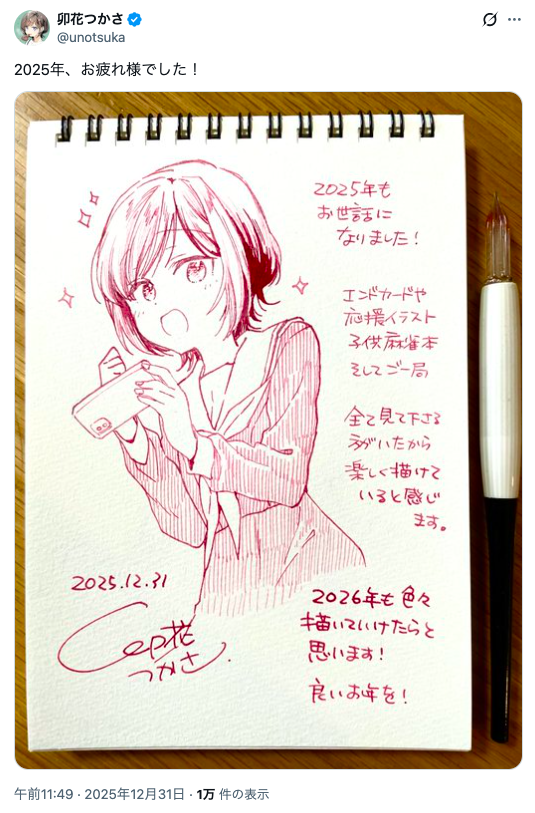 卯花つかさ
@unotsuka
2025年、お疲れ様でした！
2025年も
お世話に
なりました！
エンドカードや
応援イラスト
子供麻雀本
そしてご一局
全て見て下さる
方がいたから
楽しく描けて
いると感じ
ます。
2025.12.31
卯花
つかさ
2026年も色々
描いていけたらと
思います！
良いお年を！
午前11:49 · 2025年12月31日 · 1万 件の表示